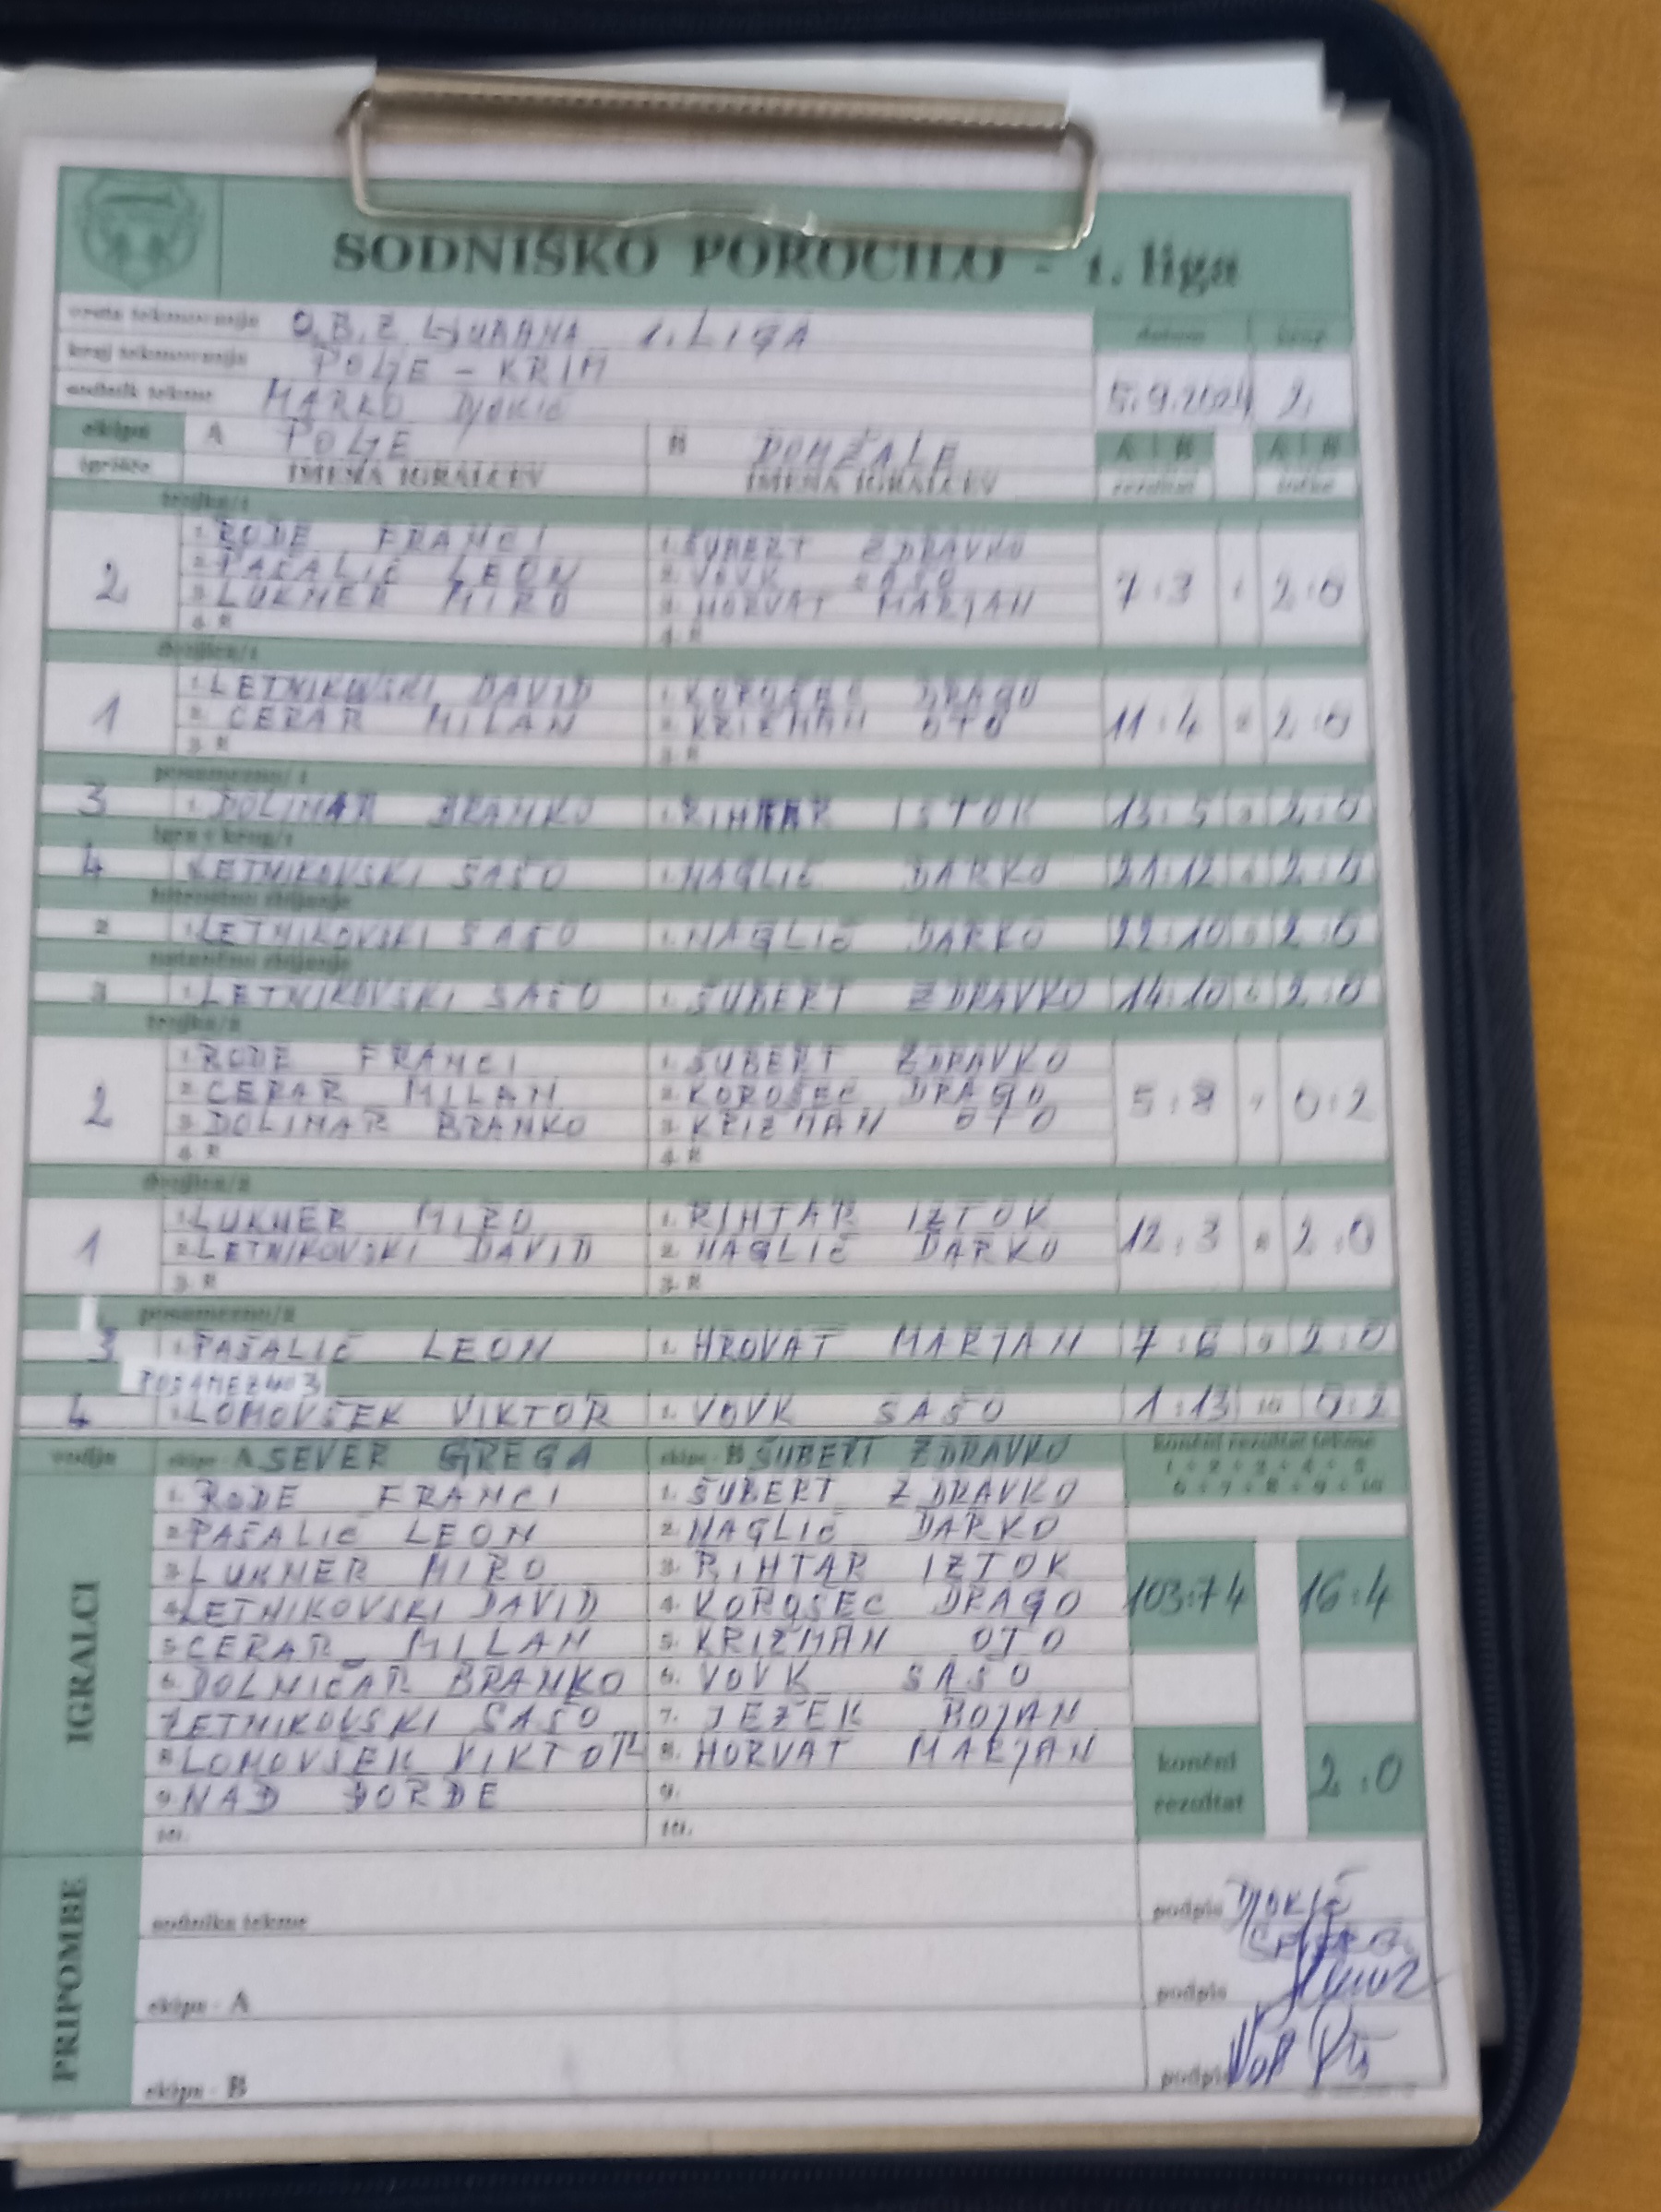 SODNIŠKO POROČILO - 1. liga
vrsta tekmovanja O.B.Z LJUBANA 1. LIGA
datum
kraj tekmovanja POLJE - KRIM
sodnik tekme MARKO DJOKIČ
5.9.2024 2.
ekipa A POLJE B DOMŽALE A : B A : B
igrišče IMENA IGRALCEV IMENA IGRALCEV rezultat točke
trojka/1
1. RODE FRANCI 1. ŠUBERT ZDRAVKO
2 2. PAŠALIČ LEON 2. VOVK SAŠO 7:3 2:0
3. LUKNER MIRO 3. HORVAT MARJAN
4. R 4. R
dvojica/1
1. LETNIKOVSKI DAVID 1. KOROŠEC DRAGO
1 2. CERAR MILAN 2. KRIŽMAN OTO 11:4 2:0
3. R 3. R
posamezno/1
3 1. DOLINAR BRANKO 1. RIHTAR ISTOK 13:5 2:0
igra v krog/1
4 LETNIKOVSKI SAŠO 1. NAGLIČ DARKO 21:12 2:0
hitrostno zbijanje
2 1. LETNIKOVSKI SAŠO 1. NAGLIČ DARKO 22:10 2:0
natančno zbijanje
3 1. LETNIKOVSKI SAŠO 1. ŠUBERT ZDRAVKO 14:10 2:0
trojka/2
1. RODE FRANCI 1. ŠUBERT ZDRAVKO
2 2. CERAR MILAN 2. KOROŠEC DRAGO 5:8 0:2
3. DOLINAR BRANKO 3. KRIŽMAN OTO
4. R 4. R
dvojica/2
1. LUKNER MIRO 1. RIHTAR IZTOK
1 2. LETNIKOVSKI DAVID 2. NAGLIČ DARKO 12:3 2:0
3. R 3. R
posamezno/2
3 1. PAŠALIČ LEON 1. HROVAT MARJAN 7:6 2:0
POSAMEZNO 3
4 1. LOMOVŠEK VIKTOR 1. VOVK SAŠO 1:13 10 0:2
vodja ekipe - A SEVER GREGA ekipe - B ŠUBERT ZDRAVKO končni rezultat tekme
1 + 2 + 3 + 4 + 5
6 + 7 + 8 + 9 + 10
IGRALCI
1. RODE FRANCI 1. ŠUBERT ZDRAVKO
2. PAŠALIČ LEON 2. NAGLIČ DARKO
3. LUKNER MIRO 3. RIHTAR IZTOK
4. LETNIKOVSKI DAVID 4. KOROŠEC DRAGO 103:74 16:4
5. CERAR MILAN 5. KRIŽMAN OTO
6. DOLNIČAR BRANKO 6. VOVK SAŠO
LETNIKOVSKI SAŠO 7. JEŽEK BOJAN
8. LOMOVŠEK VIKTOR 8. HORVAT MARJAN
končni rezultat 2:0
9. NAĐ ĐORĐE 9.
10. 10.
PRIPOMBE
sodnika tekme podpis DJOKIČ
ekipa - A podpis
ekipa - B podpis